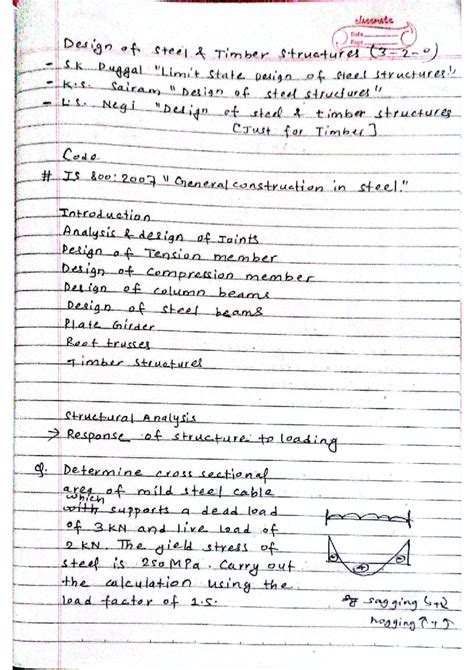 classmate
Date
Page
Design of Steel & Timber Structures (3-2-0)
- S.K. Duggal "Limit State Design of Steel Structures"
- K.S. Sairam "Design of steel structures"
- L.S. Negi "Design of steel & timber structures
[Just for Timber]
Code
# IS 800:2007 "General construction in steel."
Introduction
Analysis & design of Joints
Design of Tension member
Design of Compression member
Design of column beams
Design of steel beams
Plate Girder
Roof trusses
Timber structures
Structural Analysis
→ Response of structure to loading
Q. Determine cross sectional
area of mild steel cable
which
with supports a dead load
of 3 KN and live load of
2 KN. The yield stress of
steel is 250 MPa. Carry out
the calculation using the
load factor of 1.5.
sagging
hogging